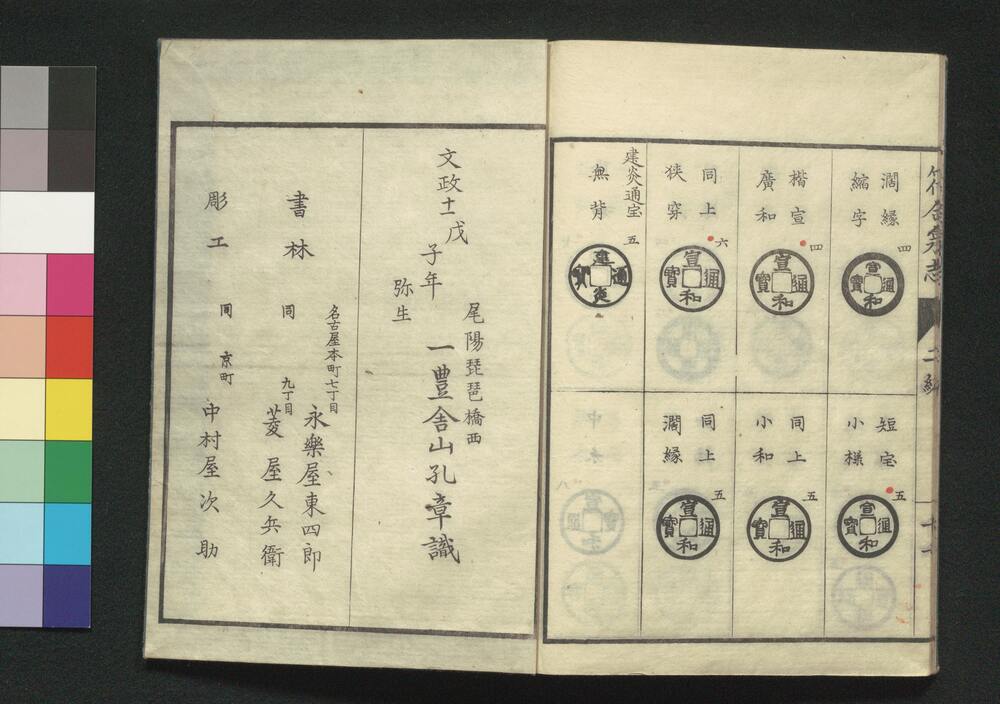 濶縁
縮字
四
楷宣
廣和
四
同上
狭穿
六
建炎通宝
無背
五
短宝
小様
五
同上
小和
五
同上
濶縁
五
宣和通寳
宣和通寳
宣和通寳
建炎通寳
宣和通寳
宣和通寳
宣和通寳
二編
十二
文政十一戊
子年
弥生
尾陽琵琶橋西
一豊舎山孔章識
書林
名古屋本町七丁目
永樂屋東四郎
同 九丁目
菱屋久兵衛
彫工
同 京町
中村屋次助